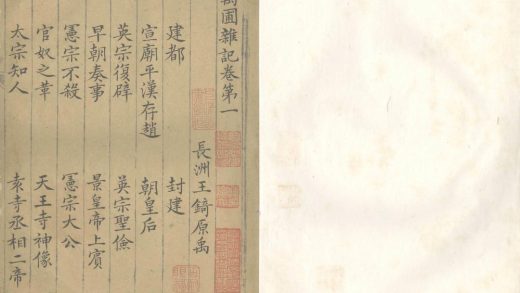 圃雜記卷第一
長洲王錡原禹
建都 封建
宣廟平漢存趙 朝皇后
英宗復辟 英宗聖儉
早朝奏事 景皇帝上賓
憲宗不殺 憲宗大公
官奴之革 天王寺神像
太宗知人 袁寺丞相二帝